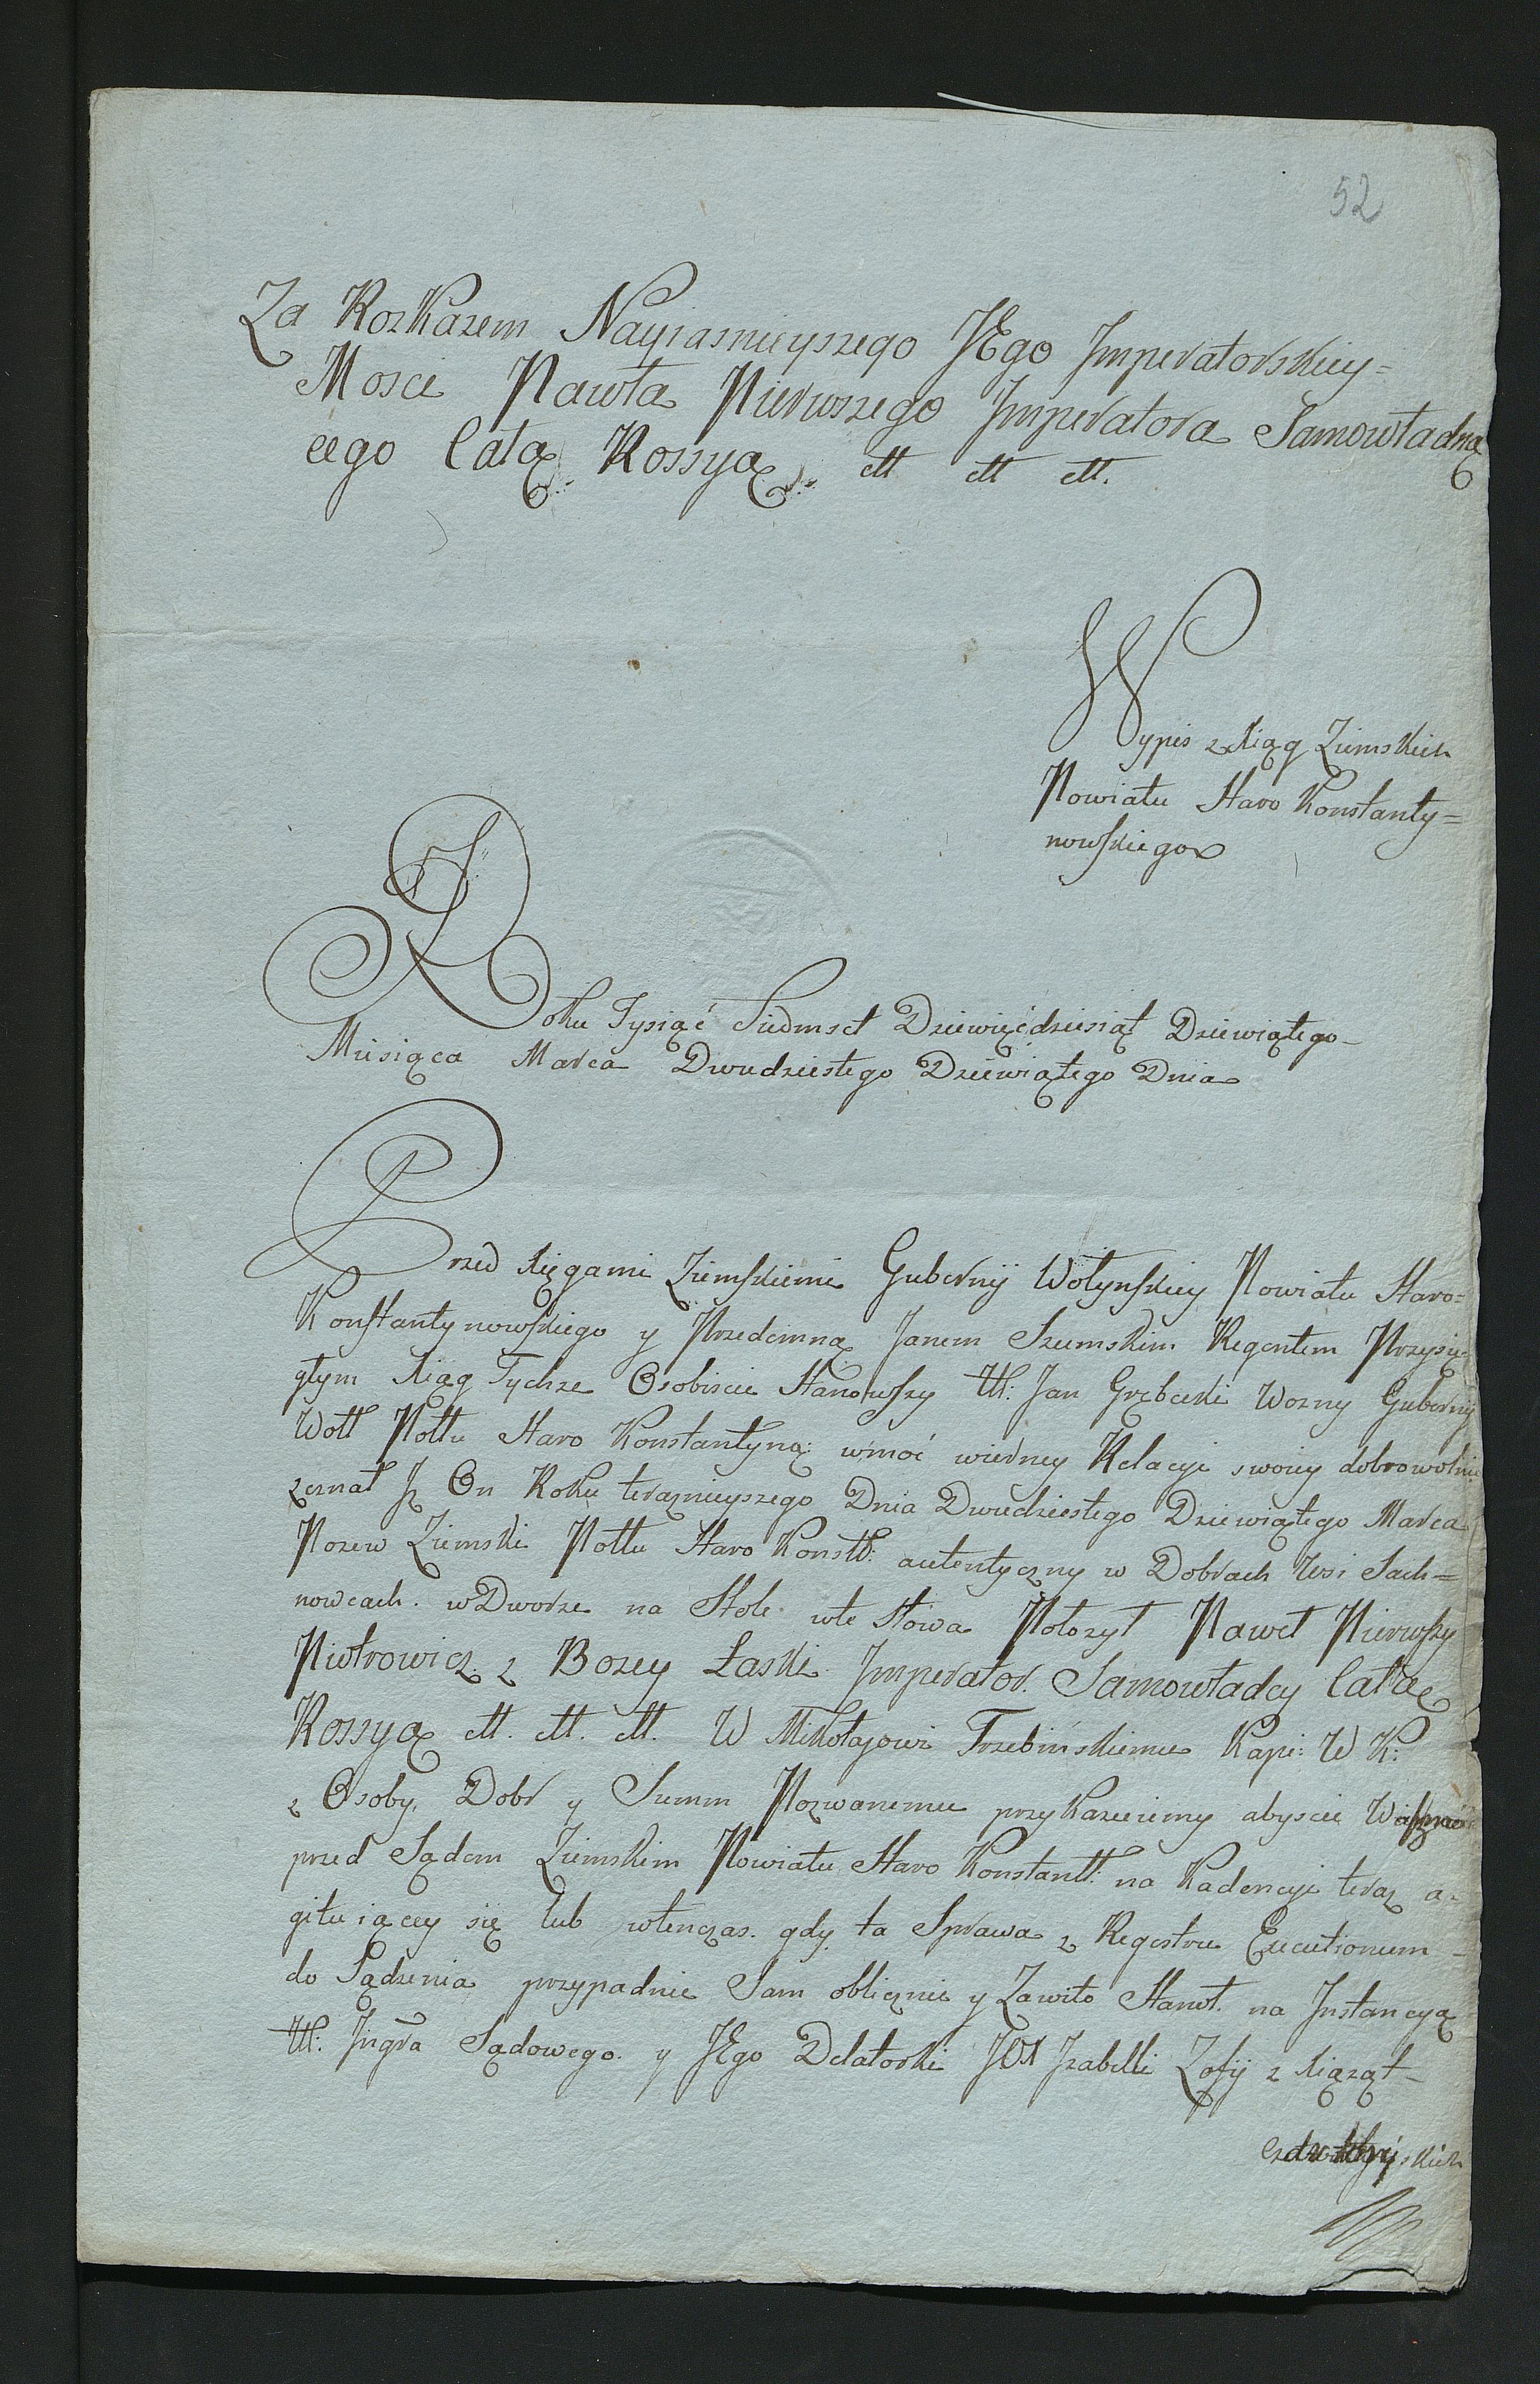 52
Za Rozkazem Nayiasnieyszego JEgo Jmperatorskiey=
Mosci Pawła Pierwszego Jmperatora Samowładną
cego Całą Rossyą ett ett ett.
Wypis z Xiąg Ziemskich
Powiatu Staro Konstanty=
nowskiego
Roku Tysiąć Siedmset Dziewięćdziesiąt Dziewiątego
Miesiąca Marca Dwudziestego Dziewiątego Dnia
Przed Xięgami Ziemskiemi Gubernij Wołynskiey Powiatu Staro=
Konstantynowskiego y Przedemną Janem Szumskim Regentem Przysię
głym Xiąg Tychże Osobiscie Stanowszy Ul: Jan Grębecki Wozny Gubernij
Woll Pottu Staro Konstantyną: w moć wierney Relacyi swoiey dobrowolnie
zeznał Jż On Roku teraznieyszego Dnia Dwudziestego Dziewiątego Marca
Pozew Ziemski Pottu Staro Konstt: autentyczny w Dobrach Wsi Sach=
nowcach. w Dworze na Stole wte słowa Położył Paweł Pierwszy
Piotrowicz z Bozey Łaski Jmperator. Samowładcy Całą
Rossyą ett. ett. ett. W Mikołajowi Trzebińskiemu Kapi: W K:
z Osoby, Dobr y Summ Pozwanemu przykazuiemy abyscie
przed Sądem Ziemskim Powiatu Staro Konstantt: na Kadencyi teraz a=
gituiącey się lub wtenczas. gdy ta Sprawa z Regestru Exeutionum
do Sądzenia przypadnie Sam oblicznie y Zawito Stanoł. na Jnstancyą
Ul: Jngra Sądowego. y JEgo Delatorki JW Jzabelli Zofij z Xiążąt